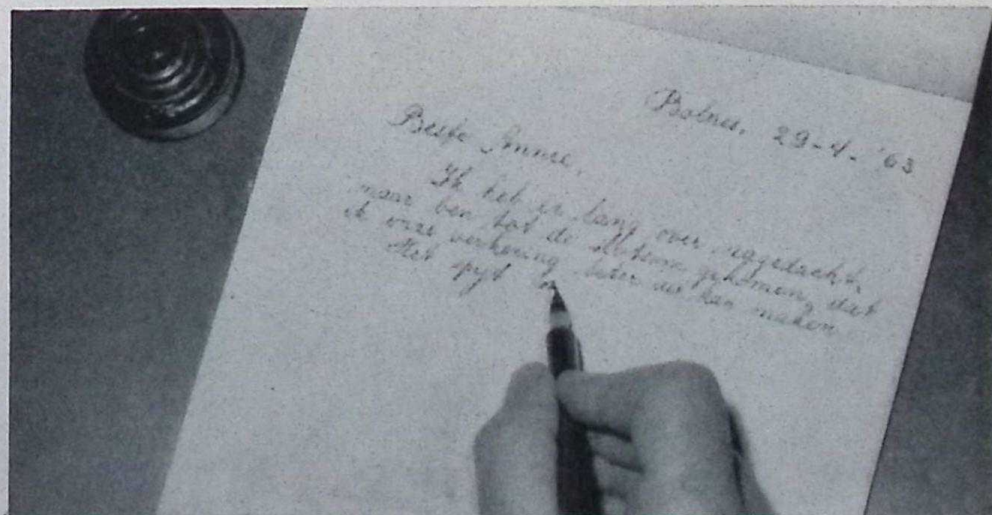 Bolnes, 29-4-'63
Beste Annie,
Ik heb er lang over nagedacht,
maar ben tot de slotsom gekomen, dat
ik onze verkering beter uit kan maken
Het spijt m